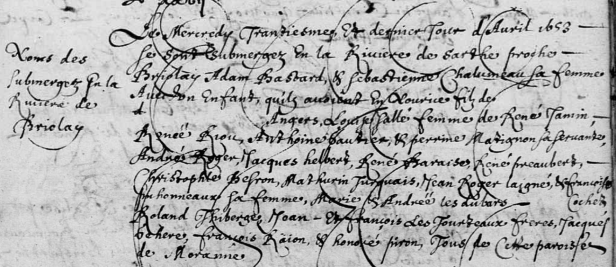 Noms des
submergez En la
Riviere de
Briolay
Le Mercredy Trantiesme Et dernier Jour d'Avril 1653
se sont submergez En la Riviere de Sarthe proche
Briolay Adam Bastard, & Sebastienne Chalumeau sa femme
Avec un Enfant, qu'ils avoient En filz de
Angers, Louise Salle femme de René Jamin,
Renée Riou, Anthoine Gautier, & perrine Matignon sa servante
André Roger, Jacques helbert, René Baraise, René freaubert,
Christophle Besron, Mathurin Turquais, Jean Roger laigné, & françoise
sa femme, Marie & Andrée les dubars
Cochet
Roland Thiberge, Jean Et François les Tourteaux freres, Jacques
behere, François Raion, & honoré piron, Tous de Cette paroisse
de Moranne